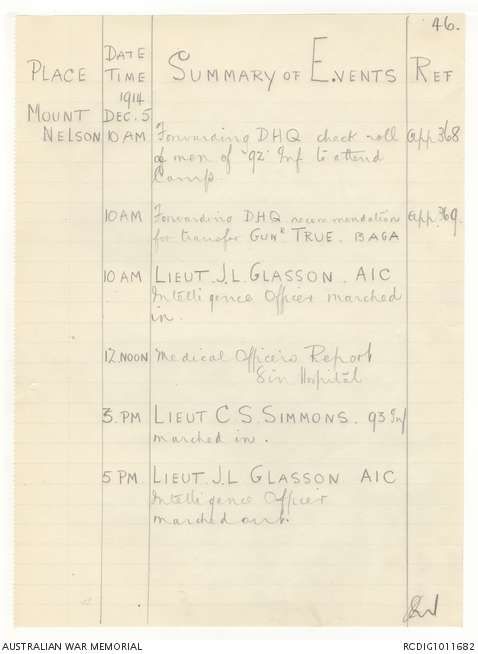 46.
PLACE DATE TIME SUMMARY OF EVENTS REF
1914
MOUNT DEC. 5
NELSON 10 AM Forwarding DHQ check roll App 368
of men of "92" Inf to attend
Camp
10 AM Forwarding DHQ recommendation App. 369.
for transfer GUNR TRUE. BAGA
10 AM LIEUT. J.L. GLASSON. AIC
Intelligence Officer marched
in.
12 NOON Medical Officers Report
8 in Hospital
3. PM LIEUT C. S. SIMMONS. 93 Inf
marched in.
5 PM LIEUT. J.L GLASSON AIC
Intelligence Officer
marched out.
AUSTRALIAN WAR MEMORIAL RCDIG1011682